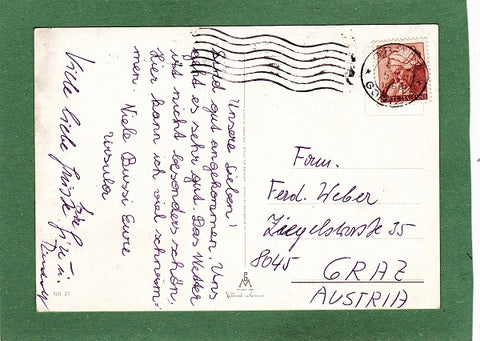 Unsere Lieben!
Sind gut angekommen. Uns
geht es sehr gut. Das Wetter
ist nicht besonders schön.
Hier kann ich viel schwim-
men. Viele Bussi Eure
Ursula
Viele liebe Grüße
Fam.
Ferd. Weber
Ziegelstraße 35
8045
GRAZ
AUSTRIA
GR 27